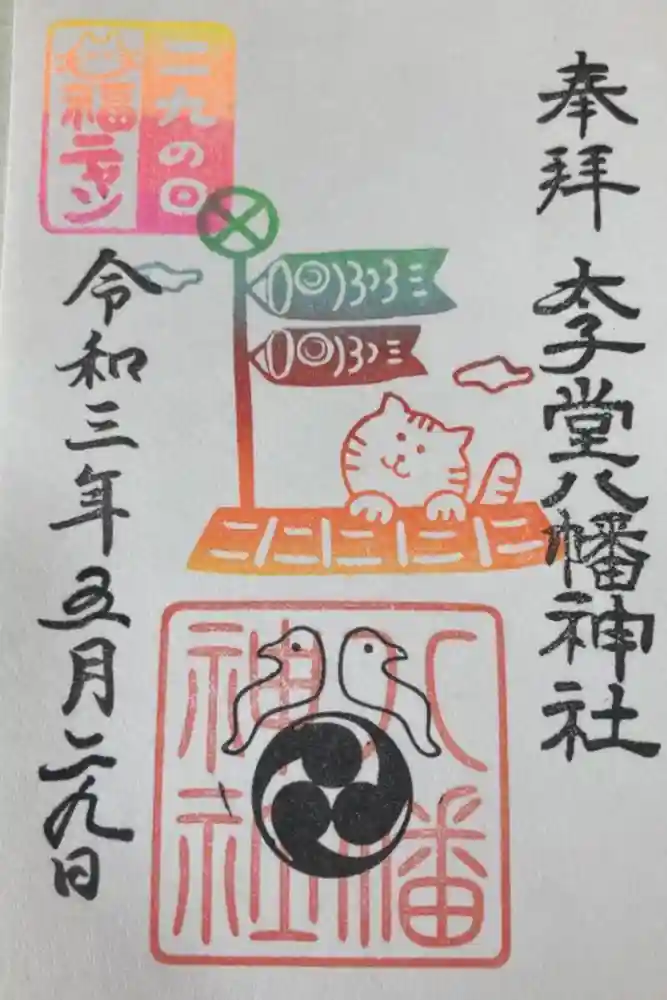 奉拝 太子堂八幡神社
二九の日
福ニャン
八幡
神社
令和三年五月二九日